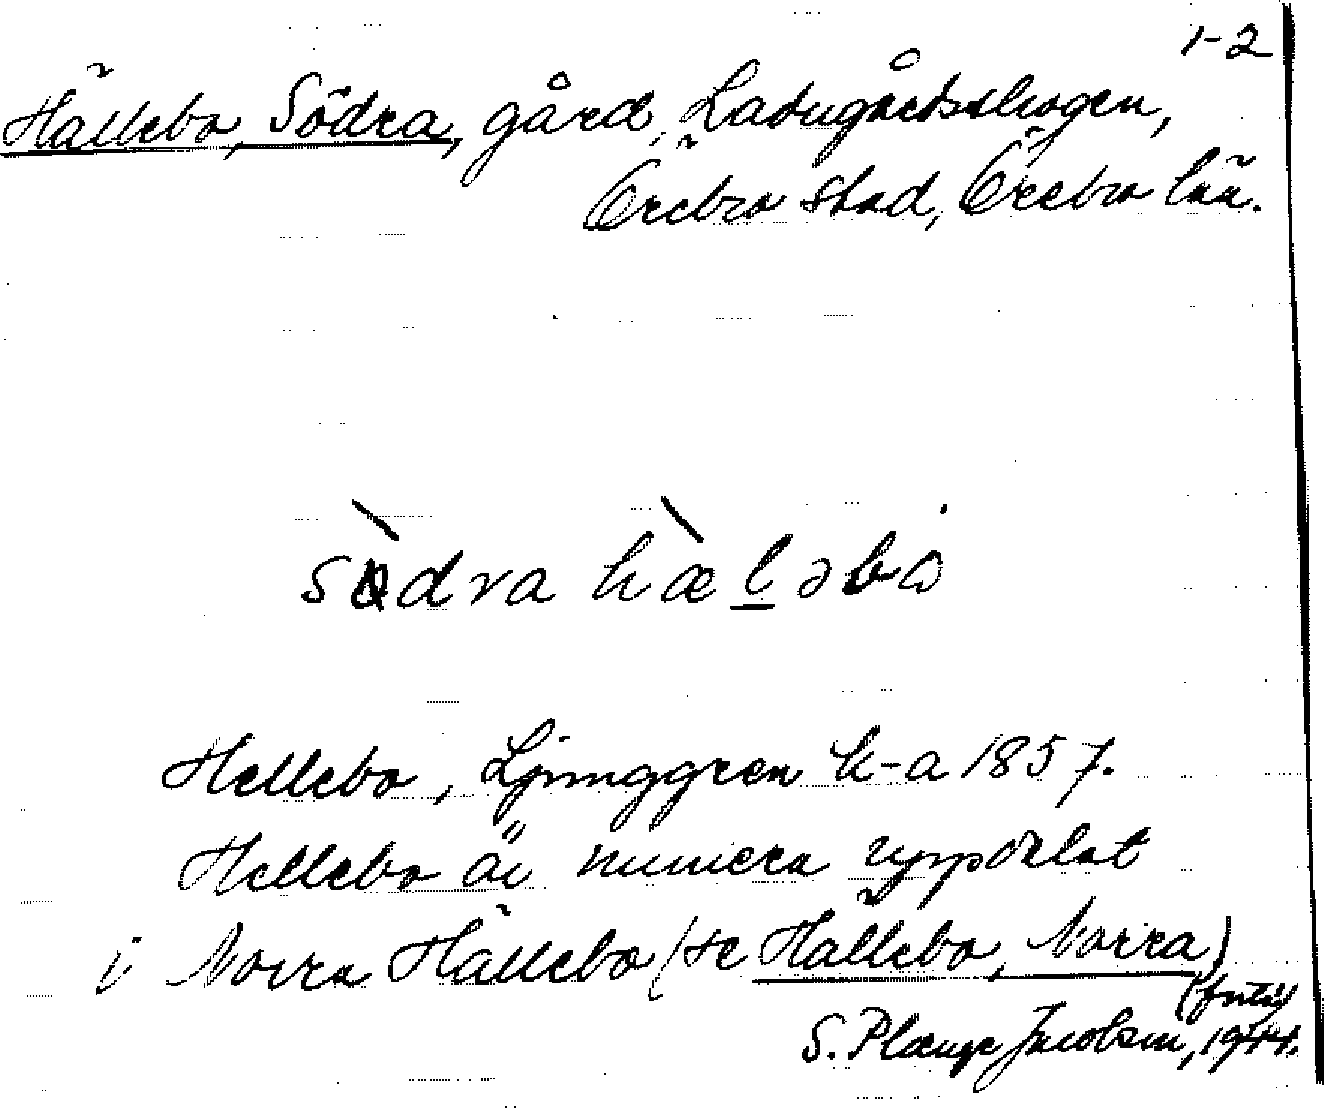 1-2
Hällebo, Södra, gård, Ladugårdsskogen,
Örebro stad, Örebro län.
sòdra hæ̀l̲əbo
Hellebo, Ljunggren k-a 1857.
Hellebo är numera uppdelat
i Norra Hällebo (se Hällebo, Norra)
S. Plange Jacobson, 1944.